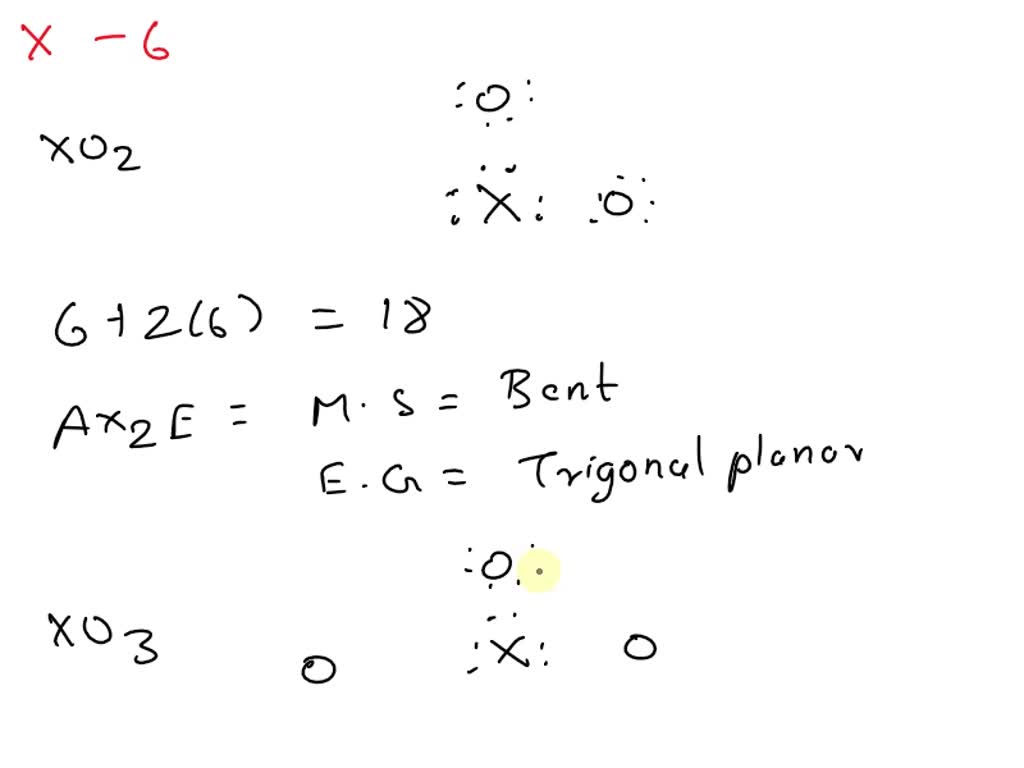 X - 6
:O:
XO2
:X: :O:
6+2(6) = 18
AX2E = M.S = Bent
E.G = Trigonal planar
:O:
XO3
O :X: O